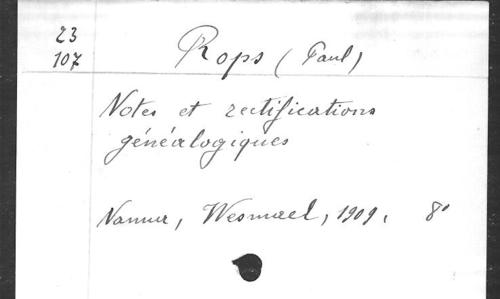 23
107
Rops (Paul)
Notes et rectifications
généalogiques
Namur, Wesmael, 1909, 8°